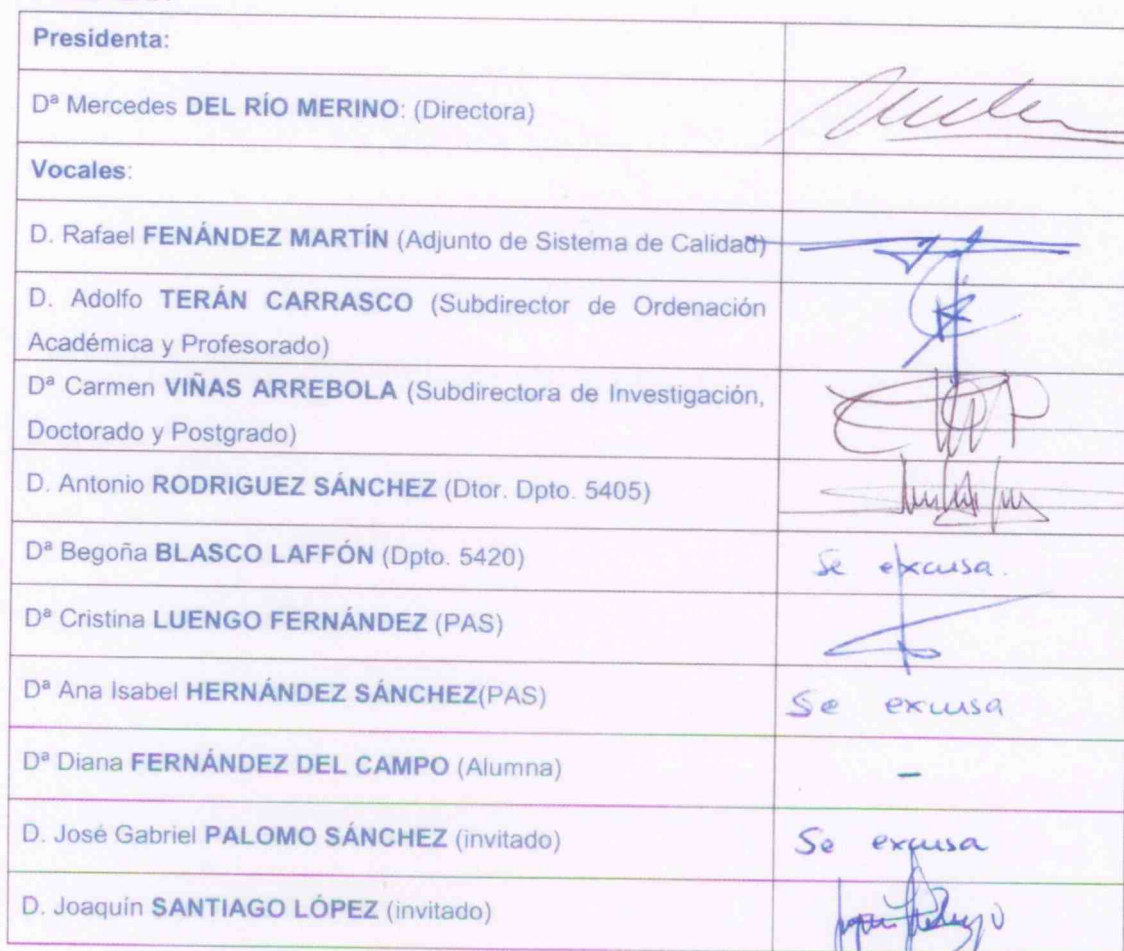 Presidenta:
Dª Mercedes DEL RÍO MERINO: (Directora)
Vocales:
D. Rafael FENÁNDEZ MARTÍN (Adjunto de Sistema de Calidad)
D. Adolfo TERÁN CARRASCO (Subdirector de Ordenación
Académica y Profesorado)
Dª Carmen VIÑAS ARREBOLA (Subdirectora de Investigación,
Doctorado y Postgrado)
D. Antonio RODRIGUEZ SÁNCHEZ (Dtor. Dpto. 5405)
Dª Begoña BLASCO LAFFÓN (Dpto. 5420) Se excusa.
Dª Cristina LUENGO FERNÁNDEZ (PAS)
Dª Ana Isabel HERNÁNDEZ SÁNCHEZ(PAS) Se excusa
Dª Diana FERNÁNDEZ DEL CAMPO (Alumna) –
D. José Gabriel PALOMO SÁNCHEZ (invitado) Se excusa
D. Joaquín SANTIAGO LÓPEZ (invitado)